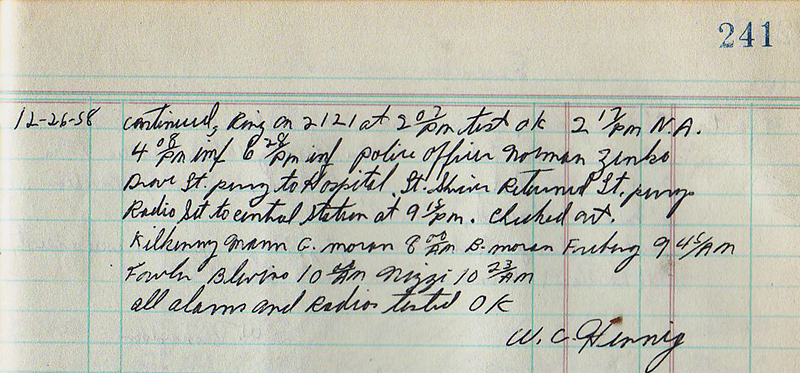 241
12-26-58 continued, Ring on 2121 at 2 07 Pm test ok 2 17 Pm N.A.
4 08 Pm inf 6 28 Pm inf police officer Norman Zenko
Drove St. pump to Hospital. St. Shiver Returned St. pump
Radio Set to central Station at 9 15 Pm. Checked art.
Kilkenny Mann G. Moran 8 00 AM B. Moran Freberg 9 45 AM
Fowler Blevins 10 AM Nizzi 10 23 AM
all alarms and Radios tested OK
W. C. Hennig